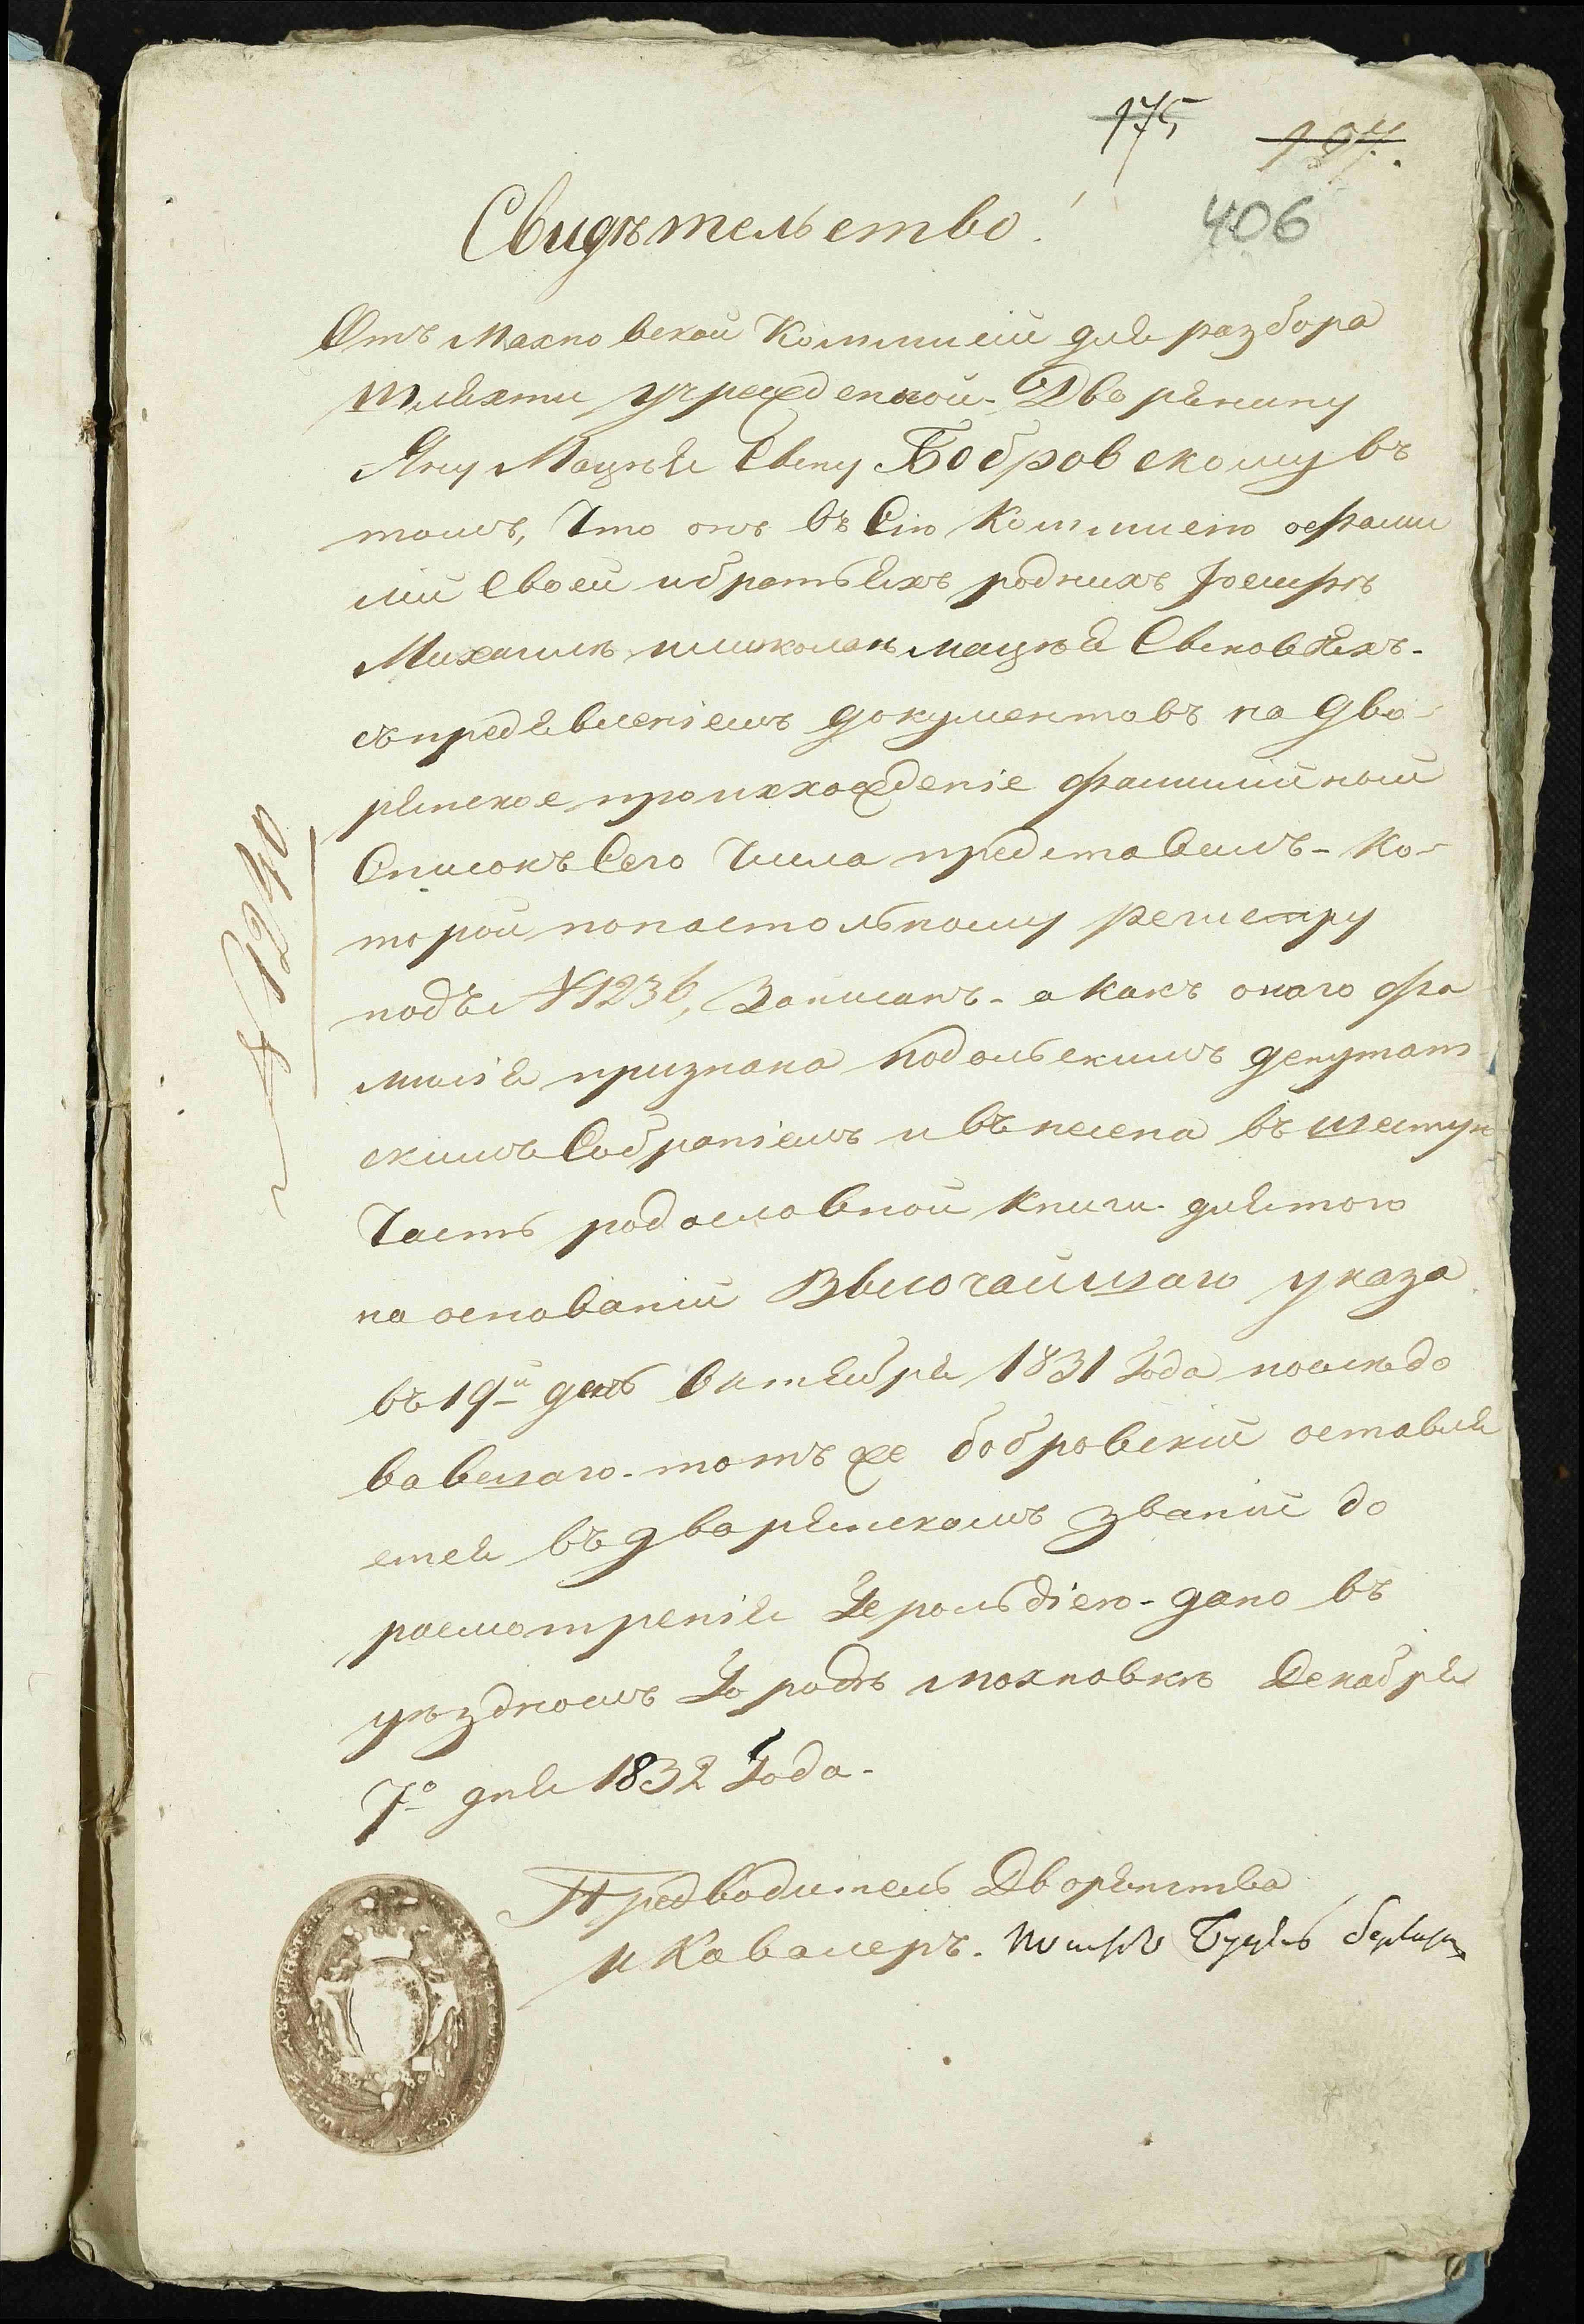 175 197.
406
Свидѣтельство!
Отъ Махновской Коммисіи для разбора
шляхты учрежденной - Дворянину
Яну Мацѣя Сыну Бобровскому въ
томъ, Что онъ въ Сію Коммисію о фами
ліи Своей и братьяхъ родныхъ Іосифѣ
Михаилѣ и Николаѣ Мацѣя Сыновьяхъ -
съ предявленіемъ документовъ на дво-
рянское произхожденіе фамилійный
Списокъ Сего Числа представилъ - Ко-
торой по настольному регистру
подъ № 1236, Записанъ - а какъ онаго фа
милія признана Подольскимъ депутат
скимъ Собраніемъ и внесена въ шестую
Часть родословной Книги - для того
на основаніи Высочайшаго указа
въ 19й день Октября 1831 Года послѣдо
вавшаго - тотъ же Бобровскій оставля
ется въ дворянскомъ званіи до
расмотренія Герольдіею - дано въ
уѣздномъ Городѣ Махновкѣ Декабря
7го дня 1832 Года -
Предводитель Дворянства
и Кавалеръ.
№ 1240